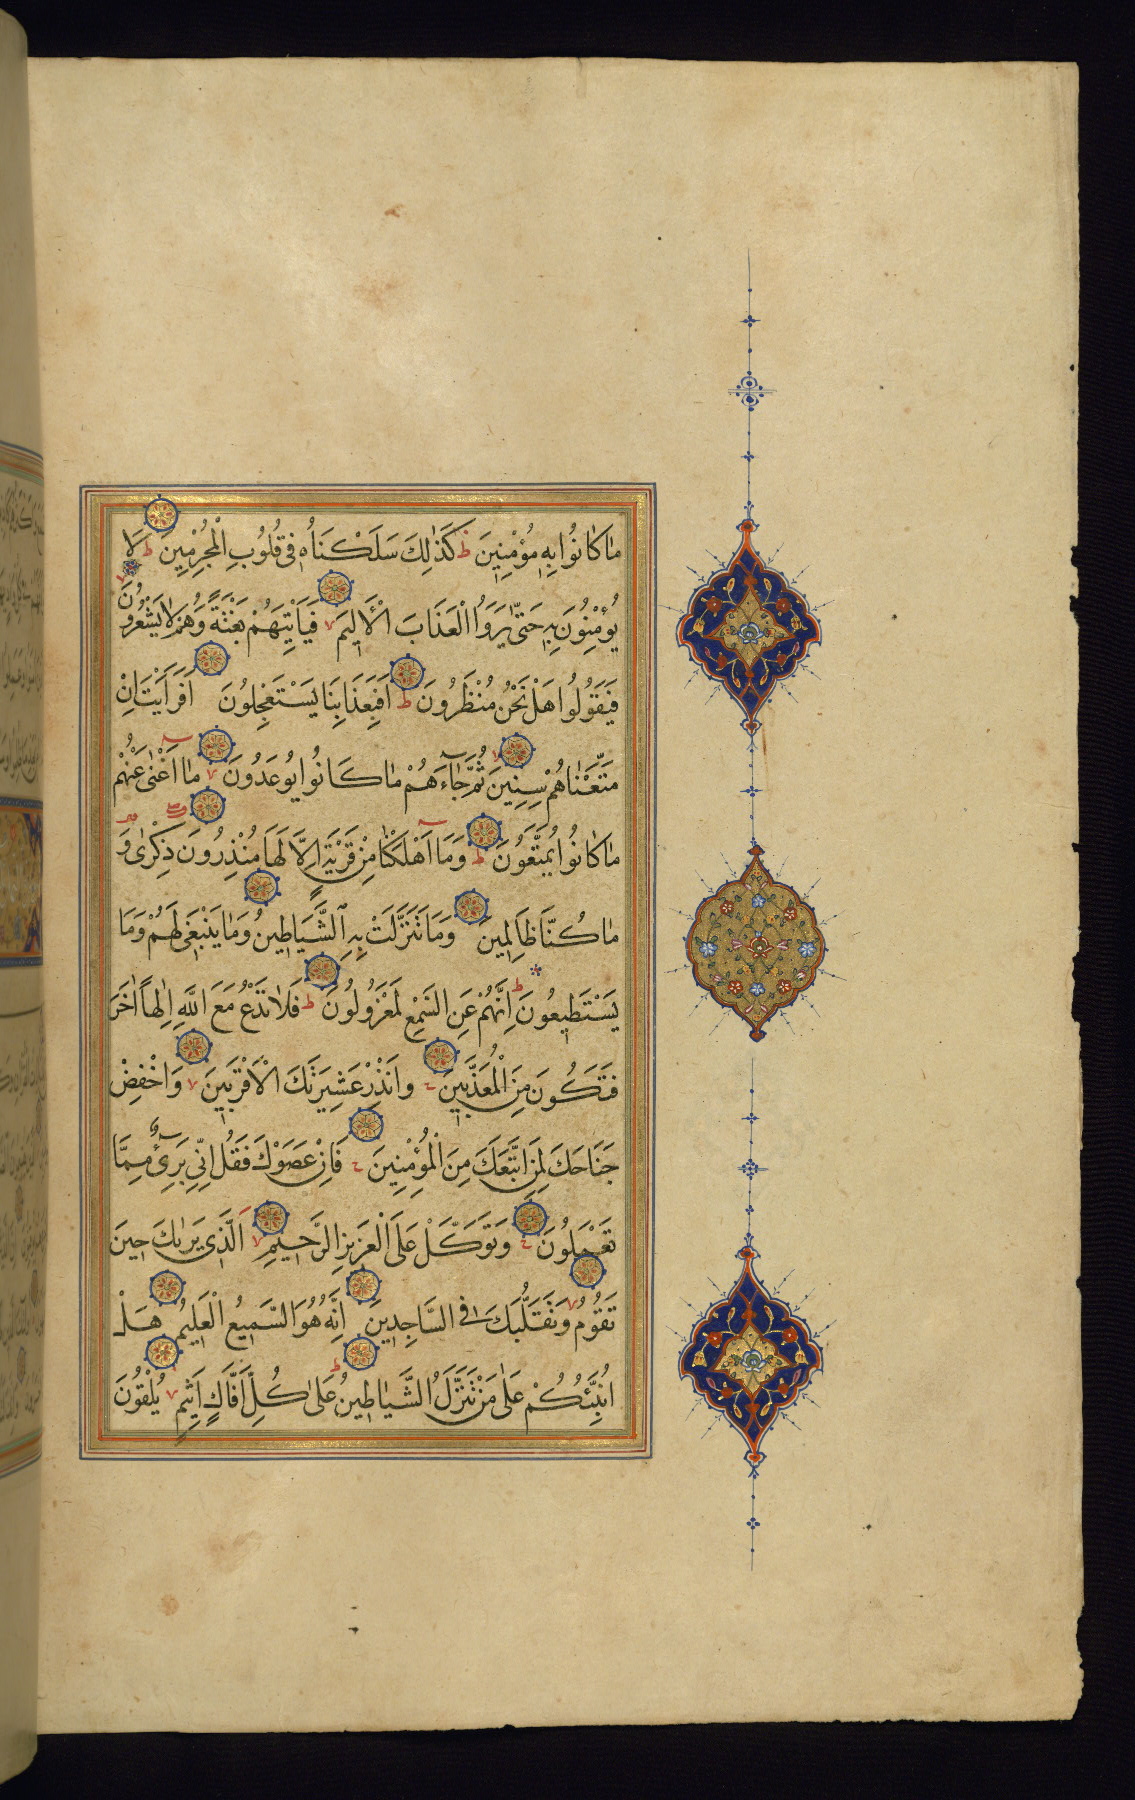 مَا كَانُوا بِهِ مُؤْمِنِينَ ط كَذٰلِكَ سَلَكْنَاهُ فِي قُلُوبِ الْمُجْرِمِينَ ط لَا
يُؤْمِنُونَ بِهِ حَتّٰى يَرَوُا الْعَذَابَ الْأَلِيمَ فَيَأْتِيَهُمْ بَغْتَةً وَهُمْ لَا يَشْعُرُونَ
فَيَقُولُوا هَلْ نَحْنُ مُنْظَرُونَ ط اَفَبِعَذَابِنَا يَسْتَعْجِلُونَ اَفَرَاَيْتَ اِنْ
مَتَّعْنَاهُمْ سِنِينَ ثُمَّ جَاءَهُمْ مَا كَانُوا يُوعَدُونَ مَا اَغْنٰى عَنْهُمْ
مَا كَانُوا يُمَتَّعُونَ ط وَمَا اَهْلَكْنَا مِنْ قَرْيَةٍ اِلَّا لَهَا مُنْذِرُونَ ذِكْرٰى وَ
مَا كُنَّا ظَالِمِينَ وَمَا تَنَزَّلَتْ بِهِ الشَّيَاطِينُ وَمَا يَنْبَغِي لَهُمْ وَمَا
يَسْتَطِيعُونَ ط اِنَّهُمْ عَنِ السَّمْعِ لَمَعْزُولُونَ ط فَلَا تَدْعُ مَعَ اللّٰهِ اِلٰهًا اٰخَرَ
فَتَكُونَ مِنَ الْمُعَذَّبِينَ وَاَنْذِرْ عَشِيرَتَكَ الْاَقْرَبِينَ وَاخْفِضْ
جَنَاحَكَ لِمَنِ اتَّبَعَكَ مِنَ الْمُؤْمِنِينَ فَاِنْ عَصَوْكَ فَقُلْ اِنِّي بَرِيءٌ مِمَّا
تَعْمَلُونَ وَتَوَكَّلْ عَلَى الْعَزِيزِ الرَّحِيمِ الَّذِي يَرٰيكَ حِينَ
تَقُومُ وَتَقَلُّبَكَ فِي السَّاجِدِينَ اِنَّهُ هُوَ السَّمِيعُ الْعَلِيمُ هَلْ
اُنَبِّئُكُمْ عَلٰى مَنْ تَنَزَّلُ الشَّيَاطِينُ ط تَنَزَّلُ عَلٰى كُلِّ اَفَّاكٍ اَثِيمٍ يُلْقُونَ